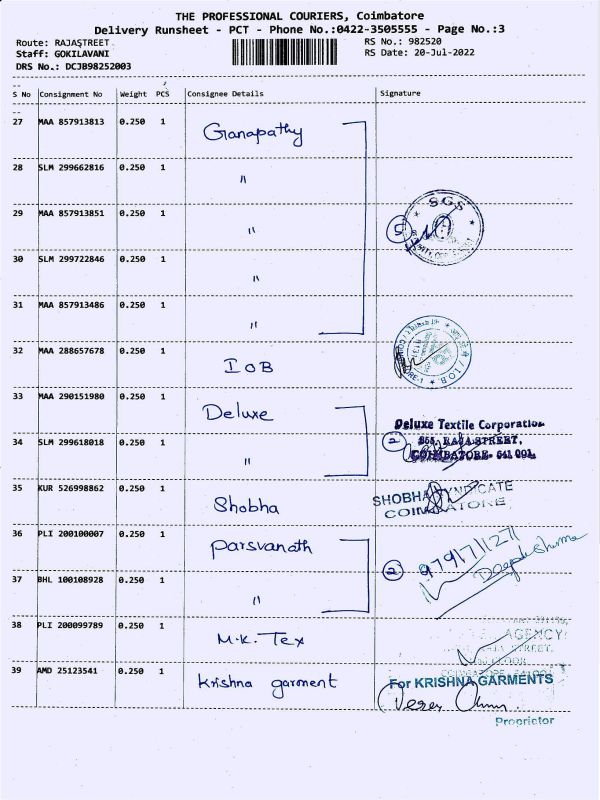 THE PROFESSIONAL COURIERS, Coimbatore
Delivery Runsheet - PCT - Phone No.:0422-3505555 - Page No.:3
Route: RAJASTREET RS No.: 982520
Staff: GOKILAVANI RS Date: 20-Jul-2022
DRS No.: DCJB98252003
S No Consignment No Weight PCS Consignee Details Signature
27 MAA 857913813 0.250 1 Ganapathy
28 SLM 299662816 0.250 1 "
29 MAA 857913851 0.250 1 " 5 SGS
30 SLM 299722846 0.250 1 "
31 MAA 857913486 0.250 1 "
32 MAA 288657678 0.250 1 IOB IOB
33 MAA 290151980 0.250 1 Deluxe
Deluxe Textile Corporation
34 SLM 299618018 0.250 1 " 2 RAJA STREET,
COIMBATORE- 641 001.
35 KUR 526998862 0.250 1 Shobha SHOBHA SYNDICATE
COIMBATORE
36 PLI 200100007 0.250 1 Parsvanath
37 BHL 100108928 0.250 1 " 2
38 PLI 200099789 0.250 1 M.K. Tex AGENCY
STREET,
39 AMD 25123541 0.250 1 Krishna garment For KRISHNA GARMENTS
Proprietor